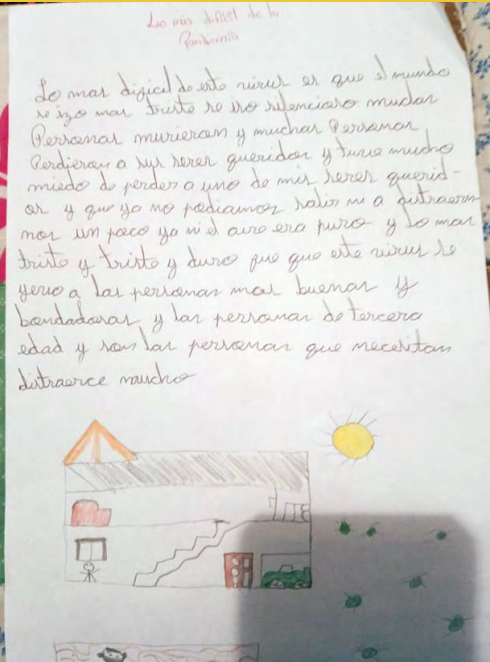 Lo más dificil de la
Pandemia
Lo mas dificil de este virus es que el mundo
se izo mas triste se iso silencioso muchas
Personas murieron y muchas Personas
Perdieron a sus seres queridos y tuve mucho
miedo de perder a uno de mis seres querid-
os y que ya no podiamos salir ni a distraer
nos un poco ya ni el aire era puro y lo mas
triste y triste y duro fue que este virus se
yevo a las personas mas buenas y
bondadosas y las personas de tercera
edad y son las personas que necesitan
distraerce mucho